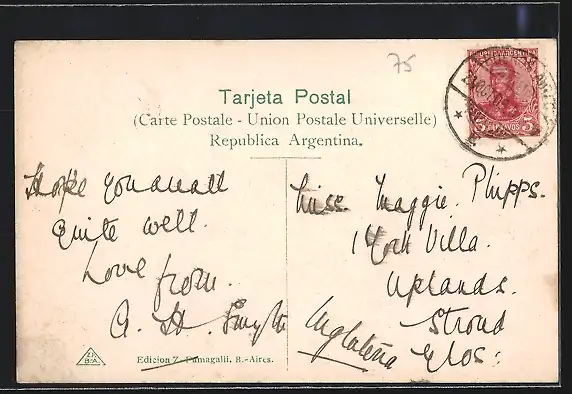 75
Tarjeta Postal
(Carte Postale - Union Postale Universelle)
Republica Argentina.
Hope you areall
quite well.
Love from.
A. H. Smyth
Miss. Maggie. Phipps.
1 York Villa.
Uplands.
Stroud
Glos:
Inglaterra
Edicion Z. Fumagalli. B.-Aires.
5 CENTAVOS 5